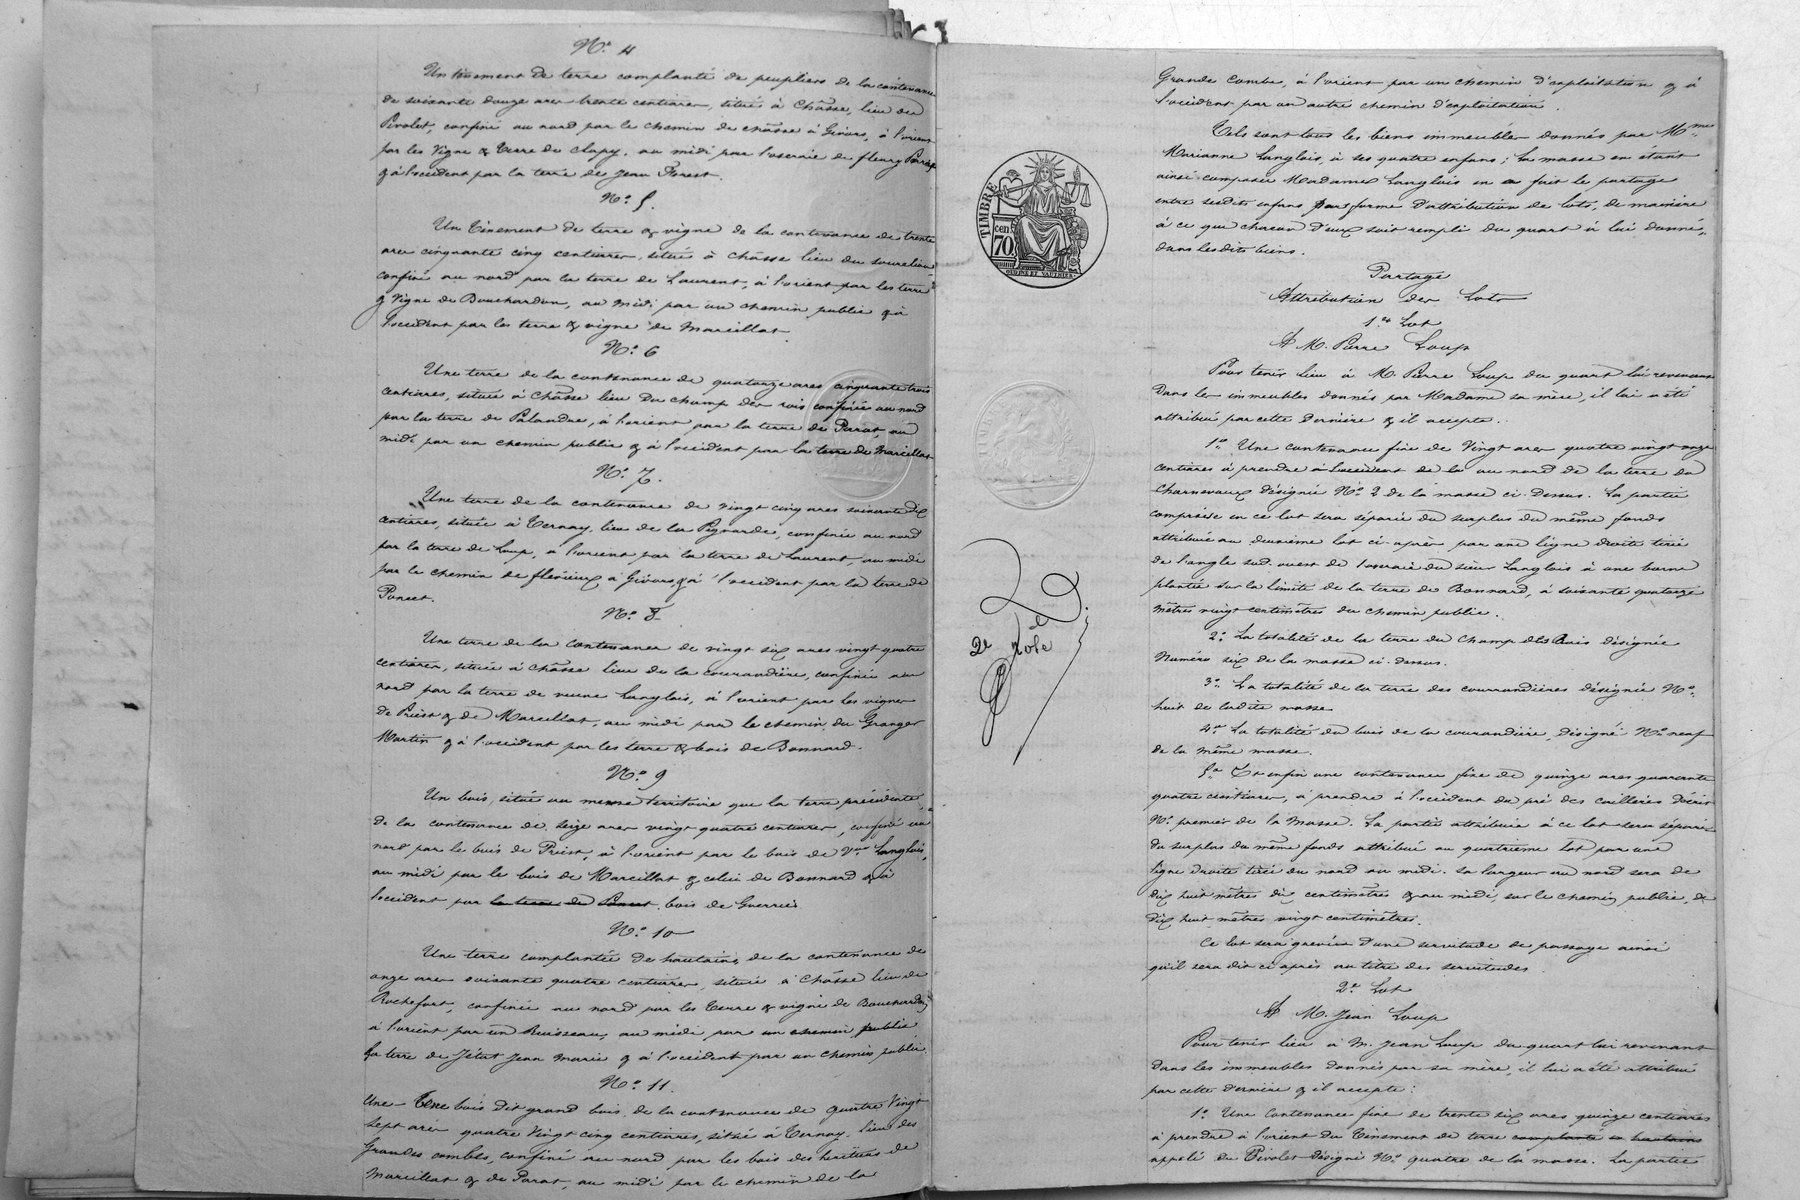 N.° 4
Un tènement de terre complanté de peupliers de la contenance
de soixante douze ares trente centiares, située à Chasse, lieu du
Pivolet, confiné au nord par le chemin de chasse à Givors, à l'orient
par les Vigne & Terre de Clapy, au midi par l'oseraie de fleury
& à l'occident par la terre de Jean Forest.
N.° 5.
Un Tènement de terre & vigne de la contenance de trente
ares cinquante cinq centiares, situé à Chasse lieu du
confiné au nord par la terre de Laurent, à l'orient par les terre
& Vigne de Bouchardon, au midi par un chemin public & à
l'occident par les terre & vigne de Marcillat.
N.° 6
Une terre de la contenance de quatorze ares cinquante trois
centiares, située à Chasse lieu du champ des rois confinée au nord
par la terre de Palandre, à l'orient par la terre de Parat, au
midi par un chemin public & à l'occident par la terre de Marcillat
N.° 7.
Une terre de la contenance de vingt cinq ares soixante dix
centiares, située à Ternay, lieu de la Pignarde, confinée au nord
par la terre de Loup, à l'orient par la terre de Laurent, au midi
par le chemin de flévieux à Givors & à l'occident par la terre de
Poncet.
N.° 8
Une terre de la contenance de vingt six ares vingt quatre
centiares, située à Chasse lieu de la courandière, confinée au
nord par la terre de veuve Langlois, à l'orient par les vignes
de Priest & de Marcillat, au midi par le chemin du Granger
Martin & à l'occident par les terre & bois de Bonnard.
N.° 9
Un bois, situé au même territoire que la terre précédente,
de la contenance de seize ares vingt quatre centiares, confiné au
nord par le bois de Priest, à l'orient par le bois de Vve Langlois,
au midi par le bois de Marcillat & celui de Bonnard & à
l'occident par la terre de Poncet. bois de Guerrier
N.° 10
Une terre complantée de hautains, de la contenance de
onze ares soixante quatre centiares, située à Chasse lieu de
Rochefort, confinée au nord par les Terre & vigne de Bouchardon,
à l'orient par un Ruisseau, au midi par un chemin public
la terre de Jétat Jean Marie & à l'occident par un chemin public.
N.° 11.
Une bois dit grand bois, de la contenance de quatre Vingt
sept ares quatre Vingt cinq centiares, situé à Ternay, lieu des
Grandes combes, confiné au nord par les bois des héritiers de
Marcillat & de Parat, au midi par le chemin de la
TIMBRE
cen
70
2e Rôle
Grande Combe, à l'orient par un chemin d'exploitation & à
l'occident par un autre chemin d'exploitation.
Tels sont tous les biens immeubles donnés par Mme
Marianne Langlois, à ses quatre enfans; la masse en étant
ainsi composée Madame Langlois en a fait le partage
entre sesdits enfans par forme d'attribution de lots, de manière
à ce que chacun d'eux soit rempli du quart à lui donné,
dans lesdits biens.
Partage
Attribution des Lots
1.er Lot
A M. Pierre Loup
Pour tenir lieu à M. Pierre Loup du quart lui revenant
dans les immeubles donnés par Madame sa mère, il lui a été
attribué par cette dernière & il accepte:
1.° Une contenance fixe de Vingt ares quatre vingt onze
centiares à prendre à l'occident de la au nord de la terre du
Charnevaux désignée N.° 2 de la masse ci-dessus. La partie
comprise en ce lot sera séparée du surplus du même fonds
attribué au deuxième lot ci-après par une ligne droite tirée
de l'angle sud-ouest de l'oseraie du sieur Langlois à une borne
plantée sur la limite de la terre de Bonnard, à soixante quatorze
mètres vingt centimètres du chemin public.
2.° La totalité de la terre du Champ des Rois désignée
Numéro six de la masse ci-dessus.
3.° La totalité de la terre des courrandières désignée N.°
huit de ladite masse
4.° La totalité du bois de la courandière, désigné N.° neuf
de la même masse.
5.° Et enfin une contenance fixe de quinze ares quarante
quatre centiares, à prendre à l'occident du pré des cuillères
N.° premier de la Masse. La partie attribuée à ce lot sera séparée
du surplus du même fonds attribué au quatrième lot par une
ligne droite tirée du nord au midi. La largeur au nord sera de
dix huit mètres dix centimètres & au midi, sur le chemin public, de
dix huit mètres vingt centimètres.
Ce lot sera grevé d'une servitude de passage ainsi
qu'il sera dit ci après au titre des servitudes.
2.e Lot
A M. Jean Loup
Pour tenir lieu à M. Jean Loup du quart lui revenant
dans les immeubles donnés par sa mère, il lui a été attribué
par cette dernière & il accepte:
1.° Une Contenance fixe de trente six ares quinze centiares
à prendre à l'orient du Tènement de terre complanté en hautains
appelé du Pivolet désigné N.° quatre de la masse. La partie